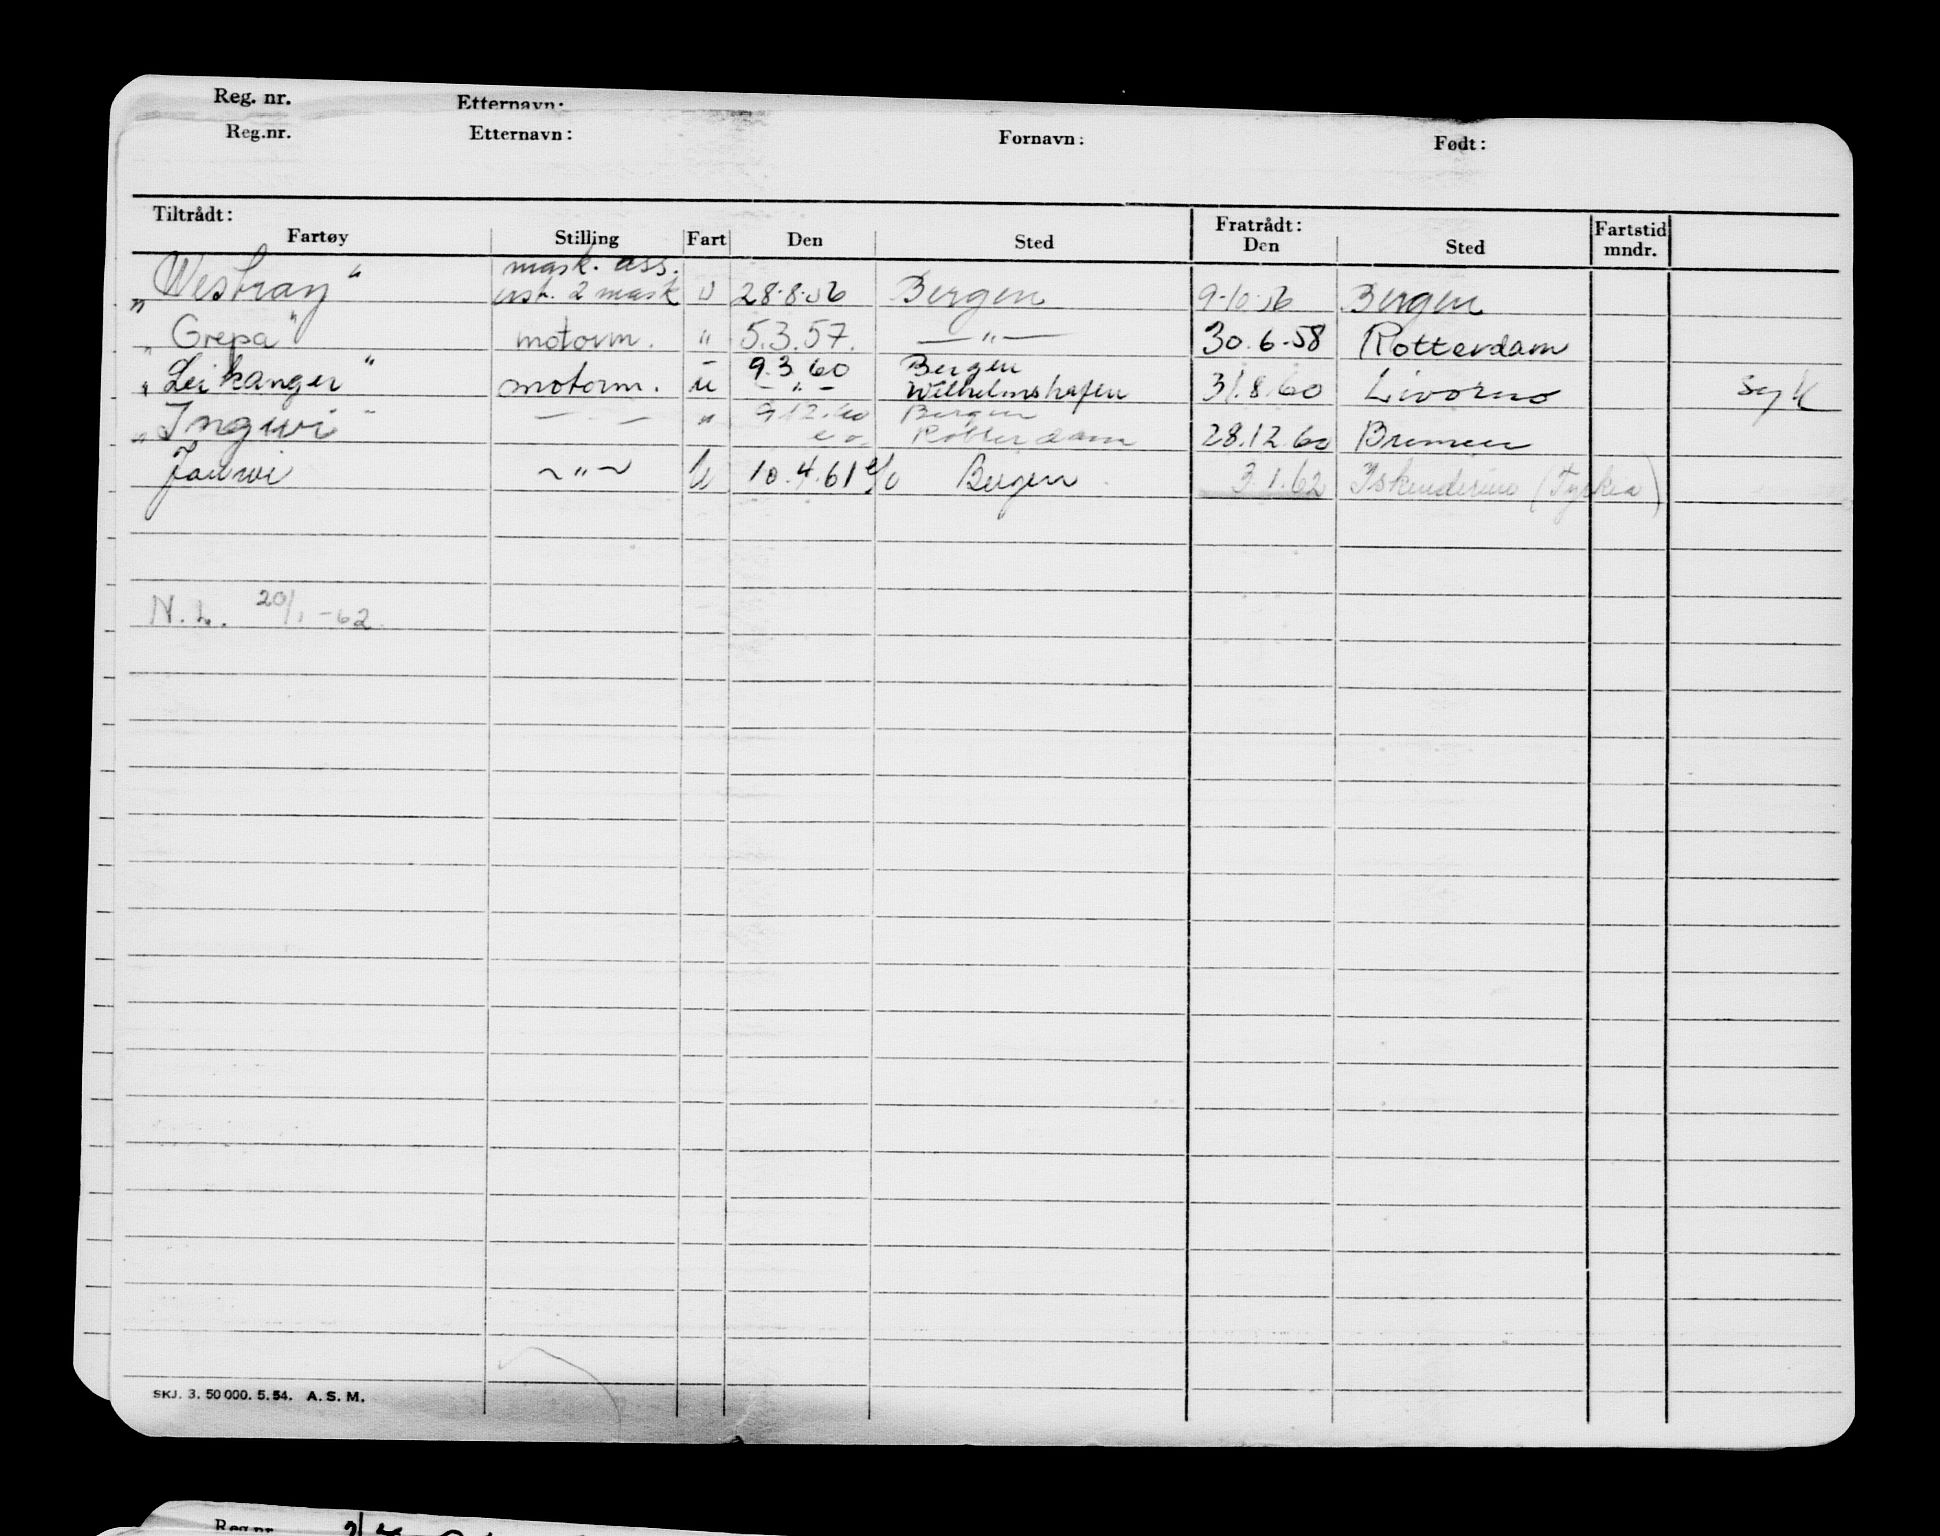 Reg. nr. Etternavn:
Reg.nr. Etternavn: Fornavn: Født:
Tiltrådt: Fratrådt: Fartstid
Fartøy Stilling Fart Den Sted Den Sted mndr.
mask. ass.
„Westray" erst. 2 mask U 28.8.56 Bergen 9.10.56 Bergen
„Grepa" motorm. " 5.3.57. —"— 30.6.58 Rotterdam
9.3.60 Bergen
„Leikanger" motorm. u —"— Wilhelmshafen 31.8.60 Livorno syk
9.12.60 Bergen
„Ingwi" — — " e.o. Rotterdam 28.12.60 Bremen
Janwi ~"~ U 10.4.61 e/o Bergen 3.1.62 Iskenderun (Tyrkia)
N.L. 20/1-62.
SKJ. 3. 50 000. 5. 54. A. S. M.
Reg.nr.